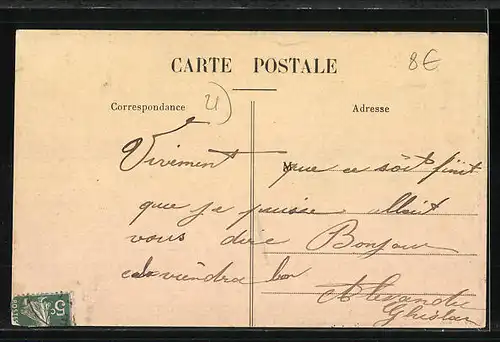 8€
CARTE POSTALE
Correspondance
21
Adresse
Vivement M que ce soit finit
que je puisse allait
vous dire Bonjour
cela viendra bon
Alexandre
Ghislain
5c